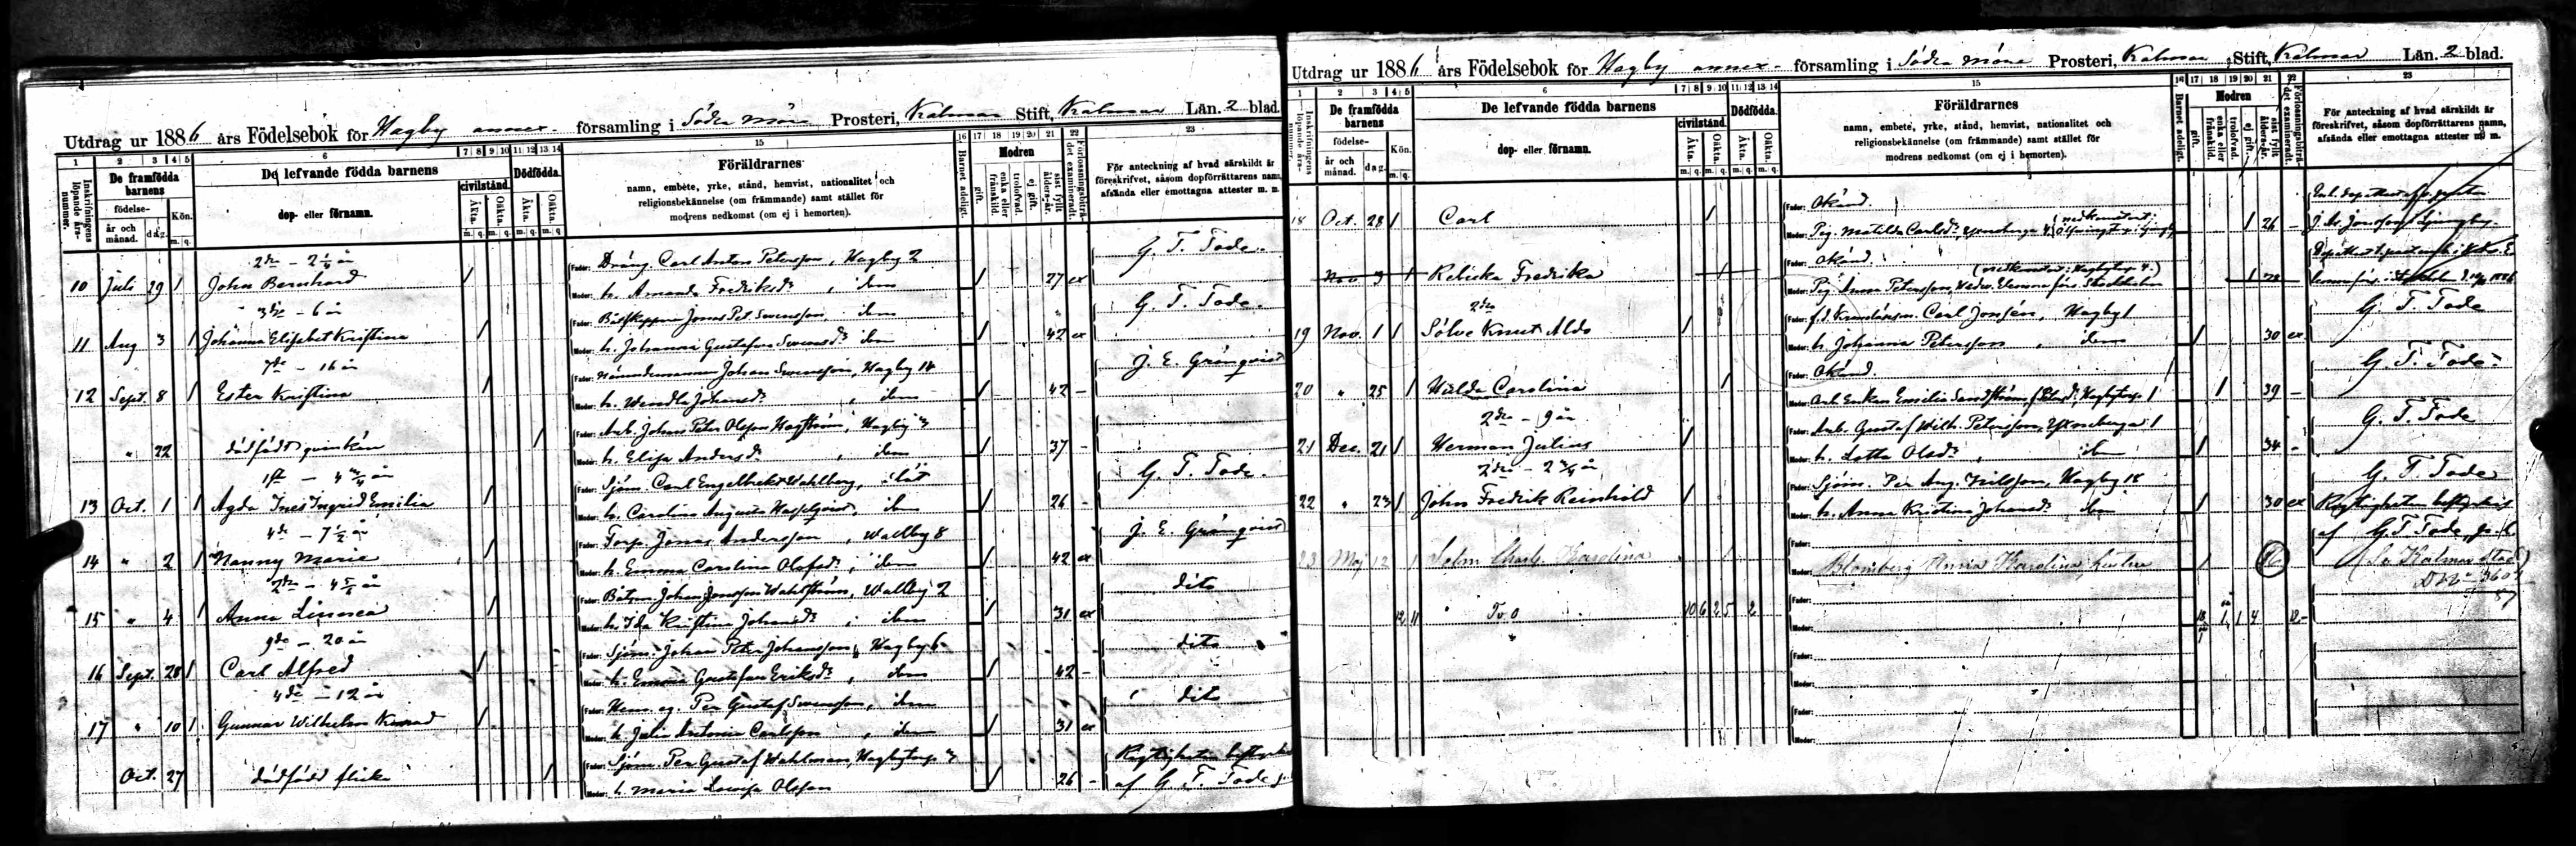 Utdrag ur 1886 års Födelsebok för Hagby annex- församling i Södra Möre Prosteri, Kalmar Stift, Kalmar Län. 2 blad.
1 2 3 4 5 6 7 8 9 10 11 12 13 14 15 16 17 18 19 20 21 22 23
Inskrifningens löpande års-nummer.
De framfödda barnens
födelse-
år och månad.
dag.
Kön.
m. q.
De lefvande födda barnens
dop- eller förnamn.
civilstånd.
Äkta. Oäkta.
m. q. m. q.
Dödfödda.
Äkta. Oäkta.
m. q. m. q.
Föräldrarnes
namn, embete, yrke, stånd, hemvist, nationalitet och
religionsbekännelse (om främmande) samt stället för
modrens nedkomst (om ej i hemorten).
Barnet adeligt.
Modren
gift.
enka eller frånskild.
trolofvad.
ej gift.
sist fyllt ålders-år.
Förlossningsbiträdet examineradt.
För anteckning af hvad särskildt är
föreskrifvet, såsom dopförrättarens namn,
afsända eller emottagna attester m. m.
2dra - 2 1/4 år
Fader: Dräng Carl Anton Petersson, Hagby 2
G. T. Tode.
10 Juli 29 1 John Bernhard 1
Moder: h. Amanda Fredriksdr, dem 1 27 ex
3dje - 6 år
Fader: Båtskeppare Jonas Pet. Svensson, dem
G. T. Tode.
11 Aug 3 1 Johanna Elisabet Kristina 1
Moder: h. Johanna Gustafva Svensdr dem 1 42 ex
7de - 16 år
Fader: Nämndemannen Johan Svensson, Hagby 14
J. E. Grönqvist
12 Sept. 8 1 Ester Kristina 1
Moder: h. Wendla Johansdr, dem 1 42 -
Fader: Arb. Johan Peter Olsson Hagström, Hagby 3
" 22 dödfödt qvinkön 1
Moder: h. Elisa Andersdr, dem 1 37 -
1sta - 4 3/4 år
Fader: Sjöm. Carl Engelbrekt Wahlberg,
G. T. Tode.
13 Oct. 1 1 Agda Ines Ingrid Emilia 1
Moder: h. Carolina Augusta Hasselqvist, dem 1 26 -
4de - 7 1/2 år
Fader: Torp. Jonas Andersson, Wallby 8
J. E. Grönqvist
14 " 2 1 Nanny Maria 1
Moder: h. Emma Carolina Olofsdr, dem 1 42 ex
2dra - 4 år
Fader: Båtsm. Johan Jonsson Wahlström, Wallby 2
dito
15 " 4 1 Anna Linnea 1
Moder: h. Ida Kristina Johansdr, dem 1 31 ex
9de - 20 år
Fader: Sjöm. Johan Peter Johansson, Hagby 6
dito
16 Sept. 28 1 Carl Alfred 1
Moder: h. Emma Gustafva Eriksdr, dem 1 42 -
4de - 12 år
Fader: Hem. eg. Per Gustaf Svensson, dem
dito
17 " 10 1 Gunnar Wilhelm Konrad 1
Moder: h. Julia Antonia Carlsson, dem 1 31 ex
Fader: Sjöm. Per Gustaf Wahlman, Hagbytorp 3
Riktigheten betygas
Oct. 27 dödfödd flicka 1
Moder: h. Maria Lovisa Olsson 1 26 -
af G. T. Tode
Utdrag ur 1886 års Födelsebok för Hagby annex- församling i Södra Möre Prosteri, Kalmar Stift, Kalmar Län. 2 blad.
1 2 3 4 5 6 7 8 9 10 11 12 13 14 15 16 17 18 19 20 21 22 23
Inskrifningens löpande års-nummer.
De framfödda barnens
födelse-
år och månad.
dag.
Kön.
m. q.
De lefvande födda barnens
dop- eller förnamn.
civilstånd.
Äkta. Oäkta.
m. q. m. q.
Dödfödda.
Äkta. Oäkta.
m. q. m. q.
Föräldrarnes
namn, embete, yrke, stånd, hemvist, nationalitet och
religionsbekännelse (om främmande) samt stället för
modrens nedkomst (om ej i hemorten).
Barnet adeligt.
Modren
gift.
enka eller frånskild.
trolofvad.
ej gift.
sist fyllt ålders-år.
Förlossningsbiträdet examineradt.
För anteckning af hvad särskildt är
föreskrifvet, såsom dopförrättarens namn,
afsända eller emottagna attester m. m.
Fader: Okänd.
18 Oct. 28 1 Carl 1
Moder: Pig. Matilda Carlsdr, 1 26 -
Fader: Okänd.
Nov. 3 1 Rebecka Fredrika 1
(nedkomster: Hagbytorp 4.)
Moder: Pig. Anna Petersson, Stockholm 1 28
2dra
Fader: Carl Jonsén, Hagby 1
G. T. Tode
19 Nov. 1 1 Sölve Knut Aldo 1
Moder: h. Johanna Petersson, dem 1 30 ex
Fader: Okänd.
G. T. Tode.
20 " 25 1 Hulda Carolina 1
Moder: Arb. Enkan Emilia Sandström, Hagbytorp 1 1 39 -
2dra - 9 år
Fader: Arb. Gustaf Wilh. Petersson,
G. T. Tode
21 Dec. 21 1 Herman Julius 1
Moder: h. Lotta Olsdr, dem 1 34 -
2dra - 2 3/4 år
Fader: Sjöm. Per Aug. Nilsson, Hagby 18
G. T. Tode
22 " 23 1 John Fredrik Reinhold 1
Moder: h. Anna Kristina Johansdr dem 1 30 ex
Riktigheten betygas
Fader:
af G. T. Tode,
23 Maj 12 1 Selm Charl. Karolina
Moder: Blomberg Anna Karolina, hustru 1
Kalmar stad)
Fader:
12 11 10 6 2 5 2
Moder:
Fader:
Moder:
Fader:
Moder: